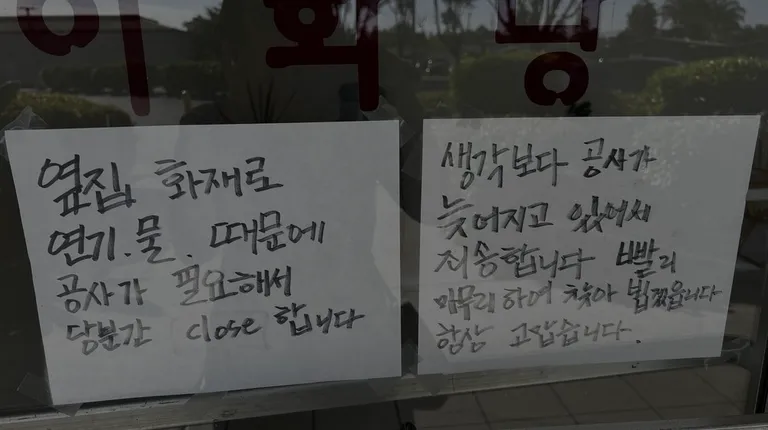 이화당
옆집 화재로
연기.물. 때문에
공사가 필요해서
당분간 close 합니다
생각보다 공사가
늦어지고 있어서
죄송합니다 빨리
마무리하여 찾아 뵙겠읍니다
항상 고맙습니다.